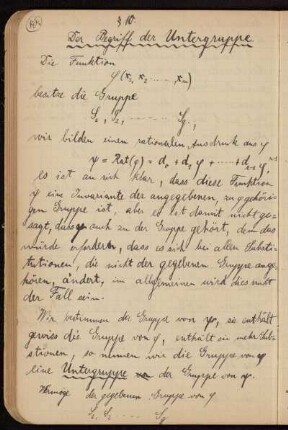 § 10.
Der Begriff der Untergruppe
Die Funktion
φ(x₁, x₂ ......, xₙ)
besitze die Gruppe
S₁, S₂, ...... S
wir bilden einen rationalen Ausdruck aus φ
ψ = Rat(φ) = d₀ + d₁ φ + ...... + d
es ist an sich klar, dass diese Funktion
ψ eine Invariante der angegebenen, zu φ gehöri-
gen Gruppe ist, aber es ist damit nicht ge-
sagt, dass ψ auch zu der Gruppe gehört, denn das
würde erfordern, dass es sich bei allen Substi-
tutionen, die nicht der gegebenen Gruppe ange-
hören, ändert, im allgemeinen wird dies nicht
der Fall sein.
Wir bestimmen die Gruppe von ψ, sie enthält
gewiss die Gruppe von φ, enthält sie mehr Sub-
stitionen, so nennen wir die Gruppe von φ
eine Untergruppe der Gruppe von ψ.
Vermöge der gegebenen Gruppe von φ
S₁, S₂ ...... S